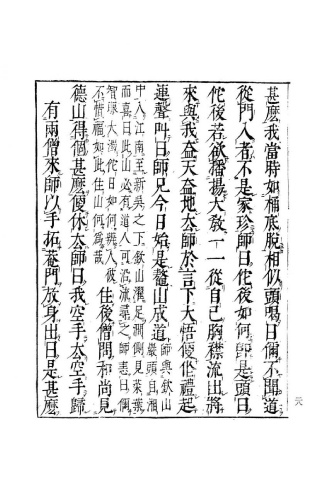 甚麼我當時如桶底脫相似頭喝曰儞不聞道
從門入者不是家珍師曰佗後如何卽是頭曰
佗後若欲播揚大敎一一從自己胸襟流出將
來與我葢天葢地去師於言下大悟便作禮起
連聲叫曰師兄今日始是鼇山成道師與欽山巖頭自湘
中入江南至新吳之下欽山濯足澗側見菜葉
而喜曰此山必有道人可沿流尋之師恚曰儞
智眼太濁佗日如何辨人彼
不惜福如此住山何爲哉
住後僧問和尚見
德山得個甚麼便休去師曰我空手去空手歸
有兩僧來師以手拓菴門放身出曰是甚麼